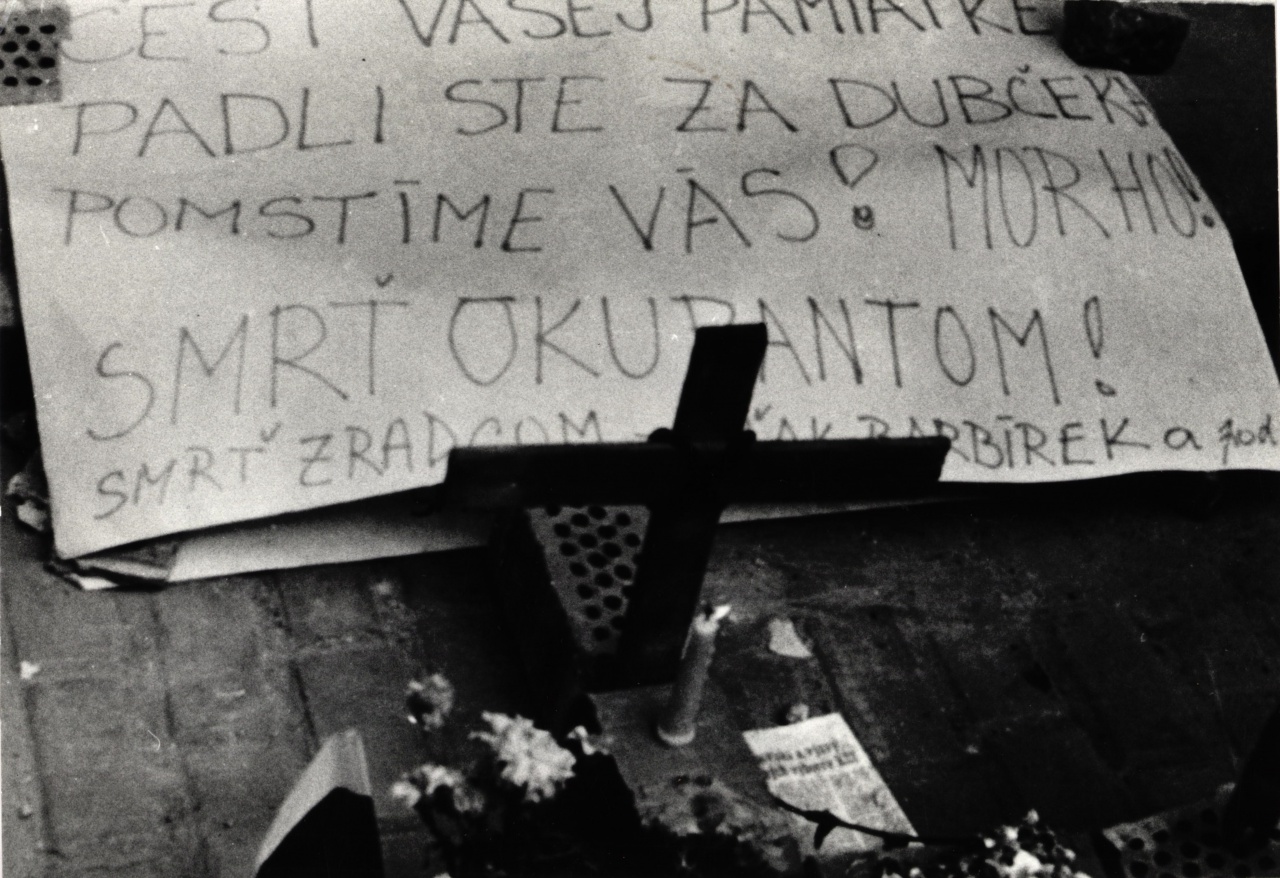 ČESŤ VAŠEJ PAMIATKE
PADLI STE ZA DUBČEKA
POMSTÍME VÁS! MOR HO!
SMRŤ OKUPANTOM!
SMRŤ ZRADCOM BARBÍREK a pod